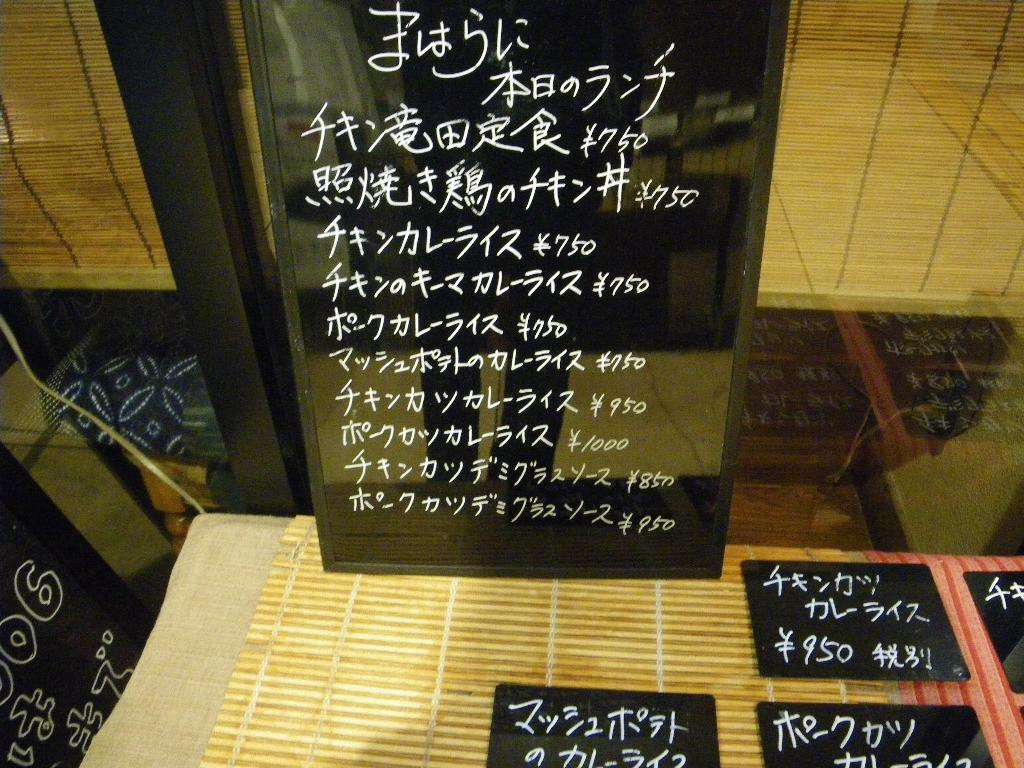 まはらに
本日のランチ
チキン竜田定食 ¥750
照焼き鶏のチキン丼 ¥750
チキンカレーライス ¥750
チキンのキーマカレーライス ¥750
ポークカレーライス ¥750
マッシュポテトのカレーライス ¥750
チキンカツカレーライス ¥950
ポークカツカレーライス ¥1000
チキンカツデミグラスソース ¥850
ポークカツデミグラスソース ¥950
チキンカツ
カレーライス
¥950 税別
チキ
マッシュポテト
のカレーライス
ポークカツ
カレーライス